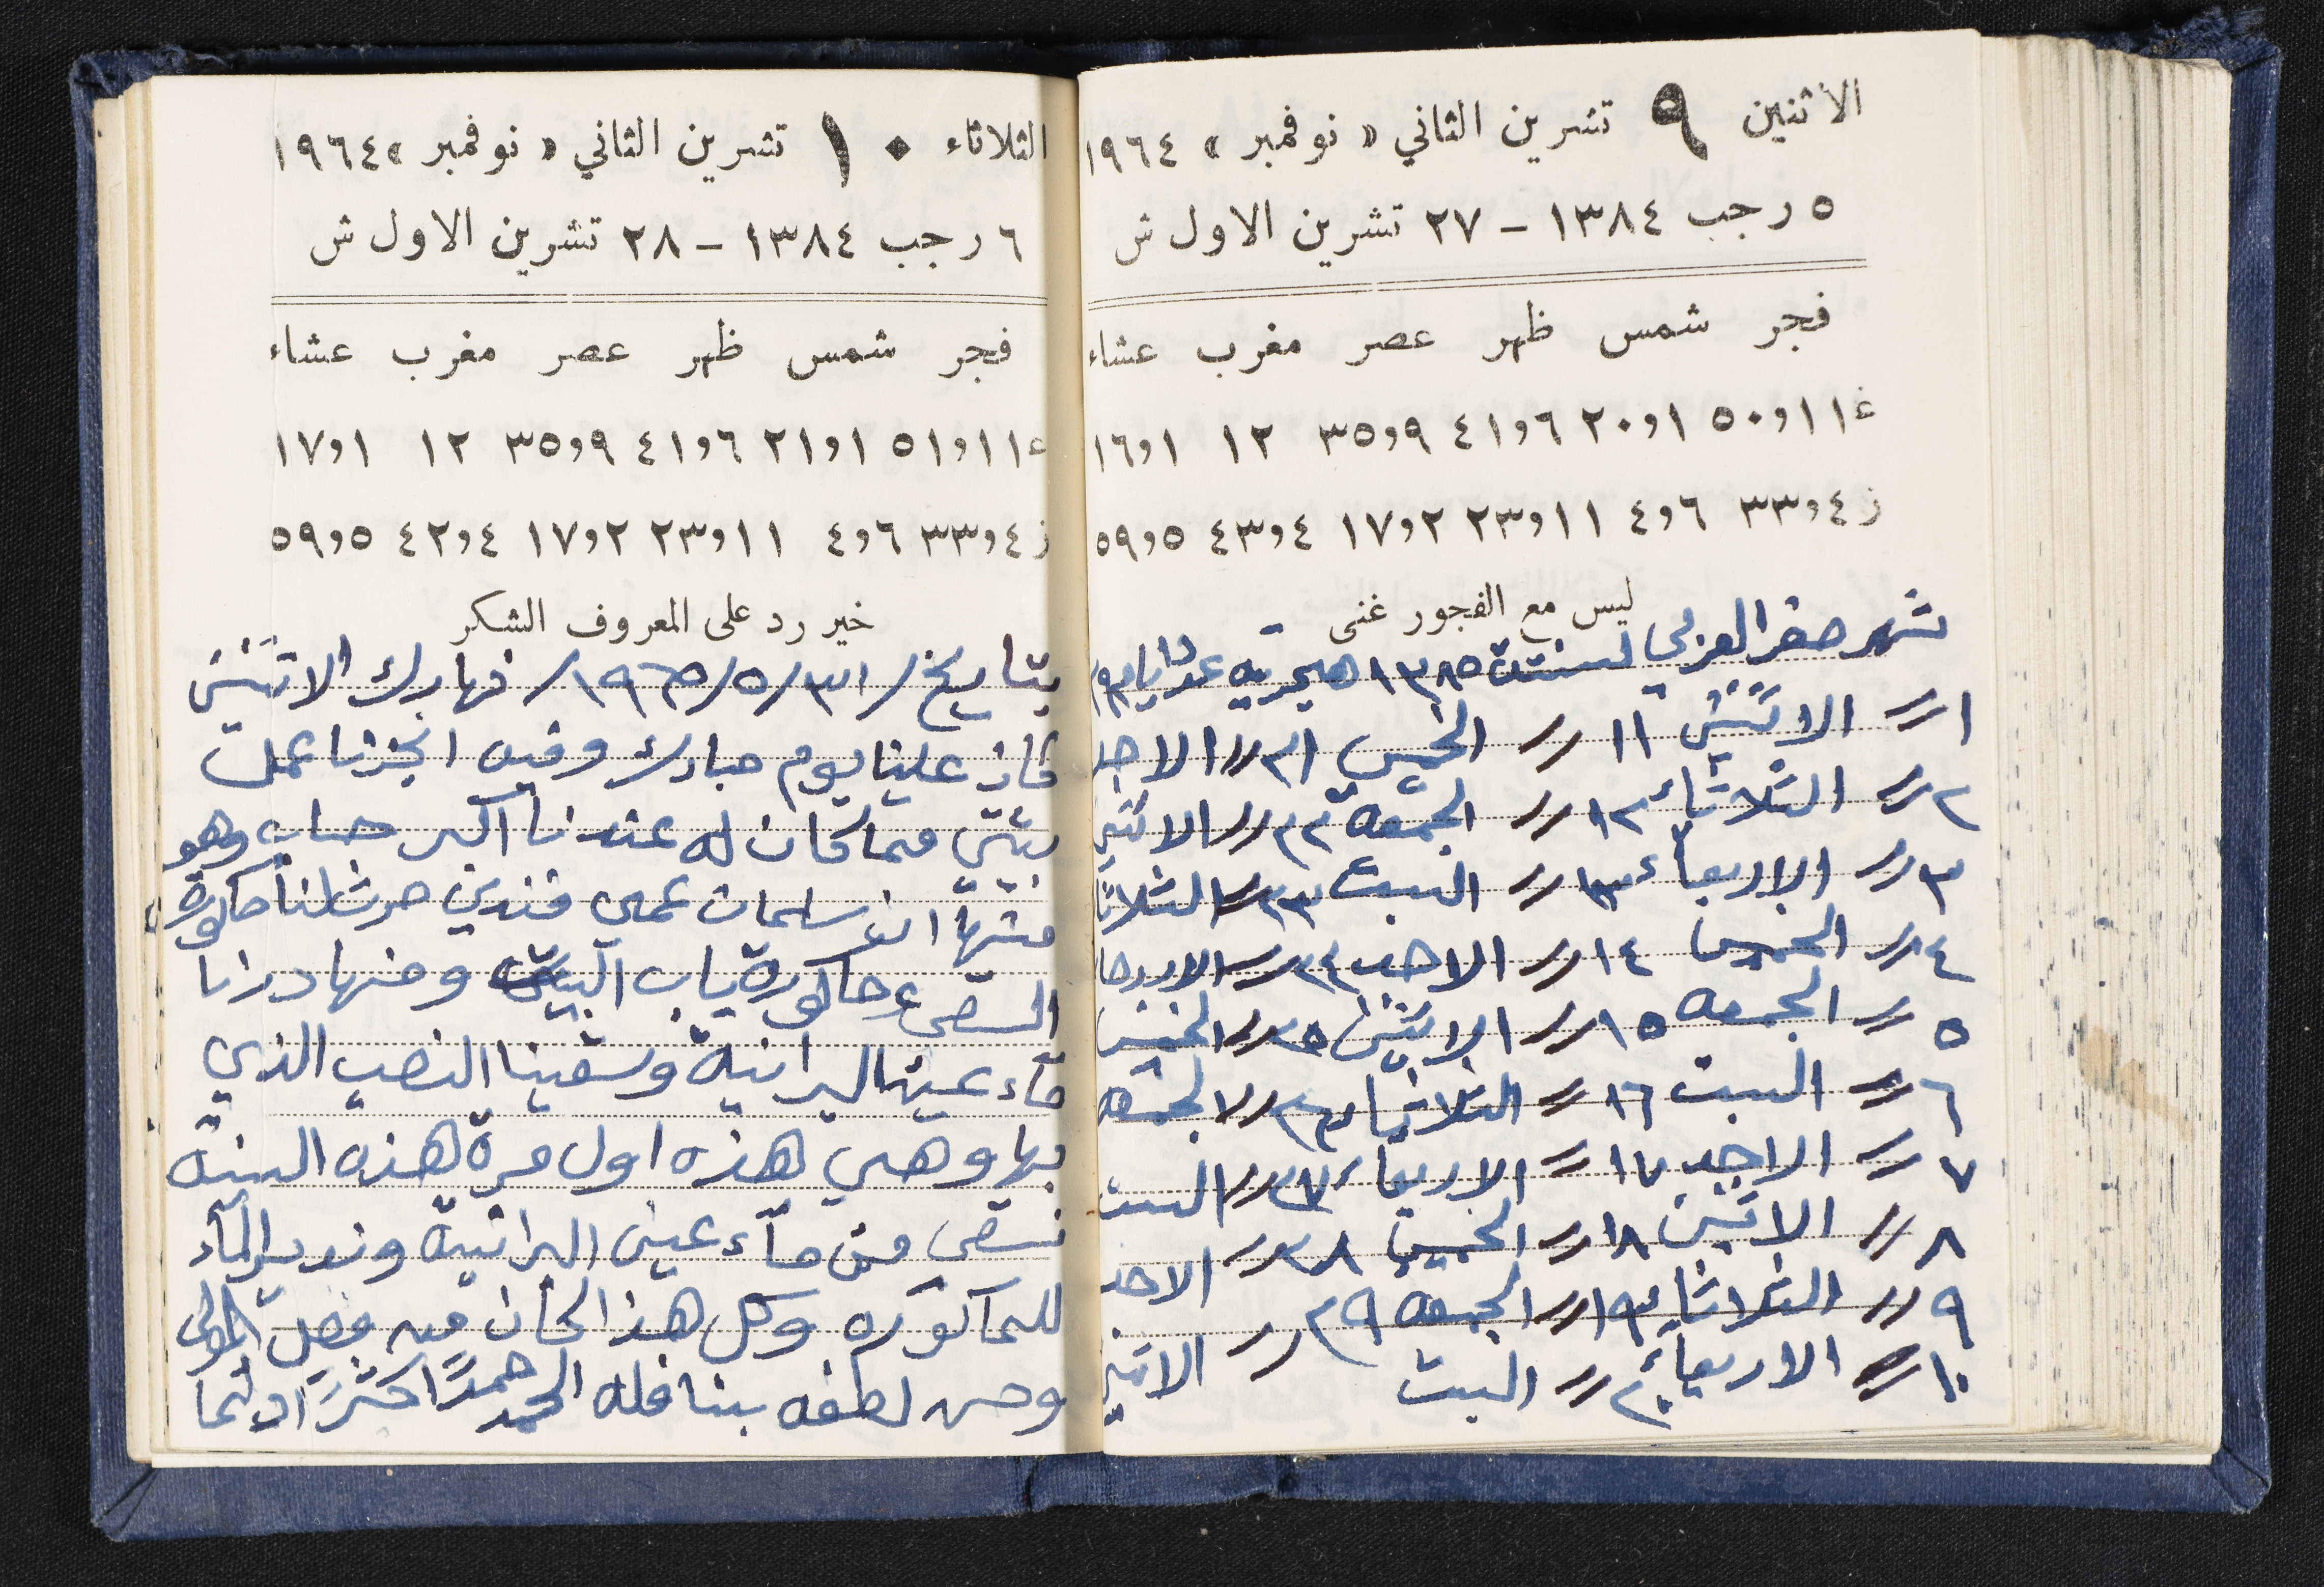 الاثنين ٩ تشرين الثاني « نوفمبر » ١٩٦٤
٥ رجب ١٣٨٤ – ٢٧ تشرين الاول ش
فجر شمس ظهر عصر مغرب عشاء
غ ١١و٥٠ ١و٢٠ ٦و٤١ ٩و٣٥ ١٢ ١و١٦
ز ٤و٣٣ ٦و٤ ١١و٢٣ ٢و١٧ ٤و٤٣ ٥و٥٩
ليس مع الفجور غنى
شهر صفر العربي لسنتة ١٣٨٥ هجرية عدد ايامه ٢٩
١ // الاثنين ١١ // الخميس ٢١ // الاحد
٢ // الثلاثاء ١٢ // الجمعة ٢٢ // الاثنين
٣ // الاربعاء ١٣ // السبت ٢٣ // الثلاثا
٤ // الخميس ١٤ // الاحد ٢٤ // الاربعا
٥ // الجمعه ١٥ // الاثنين ٢٥ // الخميس
٦ // السبت ١٦ // الثلاثاء ٢٦ // الجمعه
٧ // الاحد ١٧ // الاربعاء ٢٧ // السبت
٨ // الاثنين ١٨ // الخميس ٢٨ // الاحد
٩ // الثلاثاء ١٩ // الجمعه ٢٩ // الاثنين
١٠ // الاربعاء ٢٠ // السبت
الثلاثاء ١٠ تشرين الثاني « نوفمبر » ١٩٦٤
٦ رجب ١٣٨٤ – ٢٨ تشرين الاول ش
فجر شمس ظهر عصر مغرب عشاء
غ ١١و٥١ ١و٢١ ٦و٤١ ٩و٣٥ ١٢ ١و١٧
ز ٤و٣٣ ٦و٤ ١١و٢٣ ٢و١٧ ٤و٤٢ ٥و٥٩
خير رد على المعروف الشكر
بتاريخ /٣١/٥/١٩٦٥/ نهارك الاثنين
كان علينا يوم مبارك وفيه انجزنا عمل
مما كان له عندنا اكبر حساب وهو
منها ان سلمان عمي حرث لنا حاكورة
وحاكورة باب البيت ومنها درنا
مآء عين البرانية وسقينا النصب الذي
بها وهي هذه اول مرة هذه السنة
نسقي من مآء عين البرانية وندير المآء
للحاكوره وكل هذا كان فيه فضل المولى
وحسن لطفه بنا فله الحمد حمدًا كثيرًا دائما